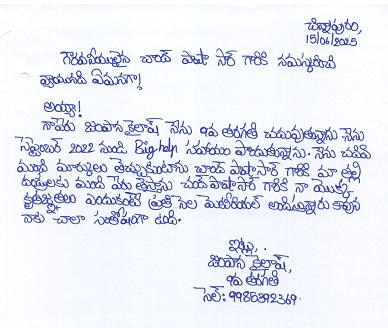 చిన్నాపురం,
15/06/2025
గౌరవనీయులైన చాంద్ పాషా సార్ గారికి నమస్కరించి
వ్రాయునది ఏమనగా!
అయ్యా!
నాపేరు జంపాన కైలాష్ నేను 9వ తరగతి చదువుతున్నాను నేను
సెప్టెంబర్ 2022 నుండి Big help సహాయం పొందుతున్నాను. నేను చదివి
మంచి మార్కులు తెచ్చుకుంటాను చాంద్ పాషా సార్ గారికి మా తల్లి
దండ్రులకు మంచి పేరు తెస్తాను చాంద్ పాషా సార్ గారికి నా యొక్క
కృతజ్ఞతలు ఎందుకంటే ప్రతి నెల మెటీరియల్ అందిస్తున్నారు కావున
నాకు చాలా సంతోషంగా ఉంది.
ఇట్లు,
జంపాన కైలాష్,
9వ తరగతి
సెల్: 9985392369.